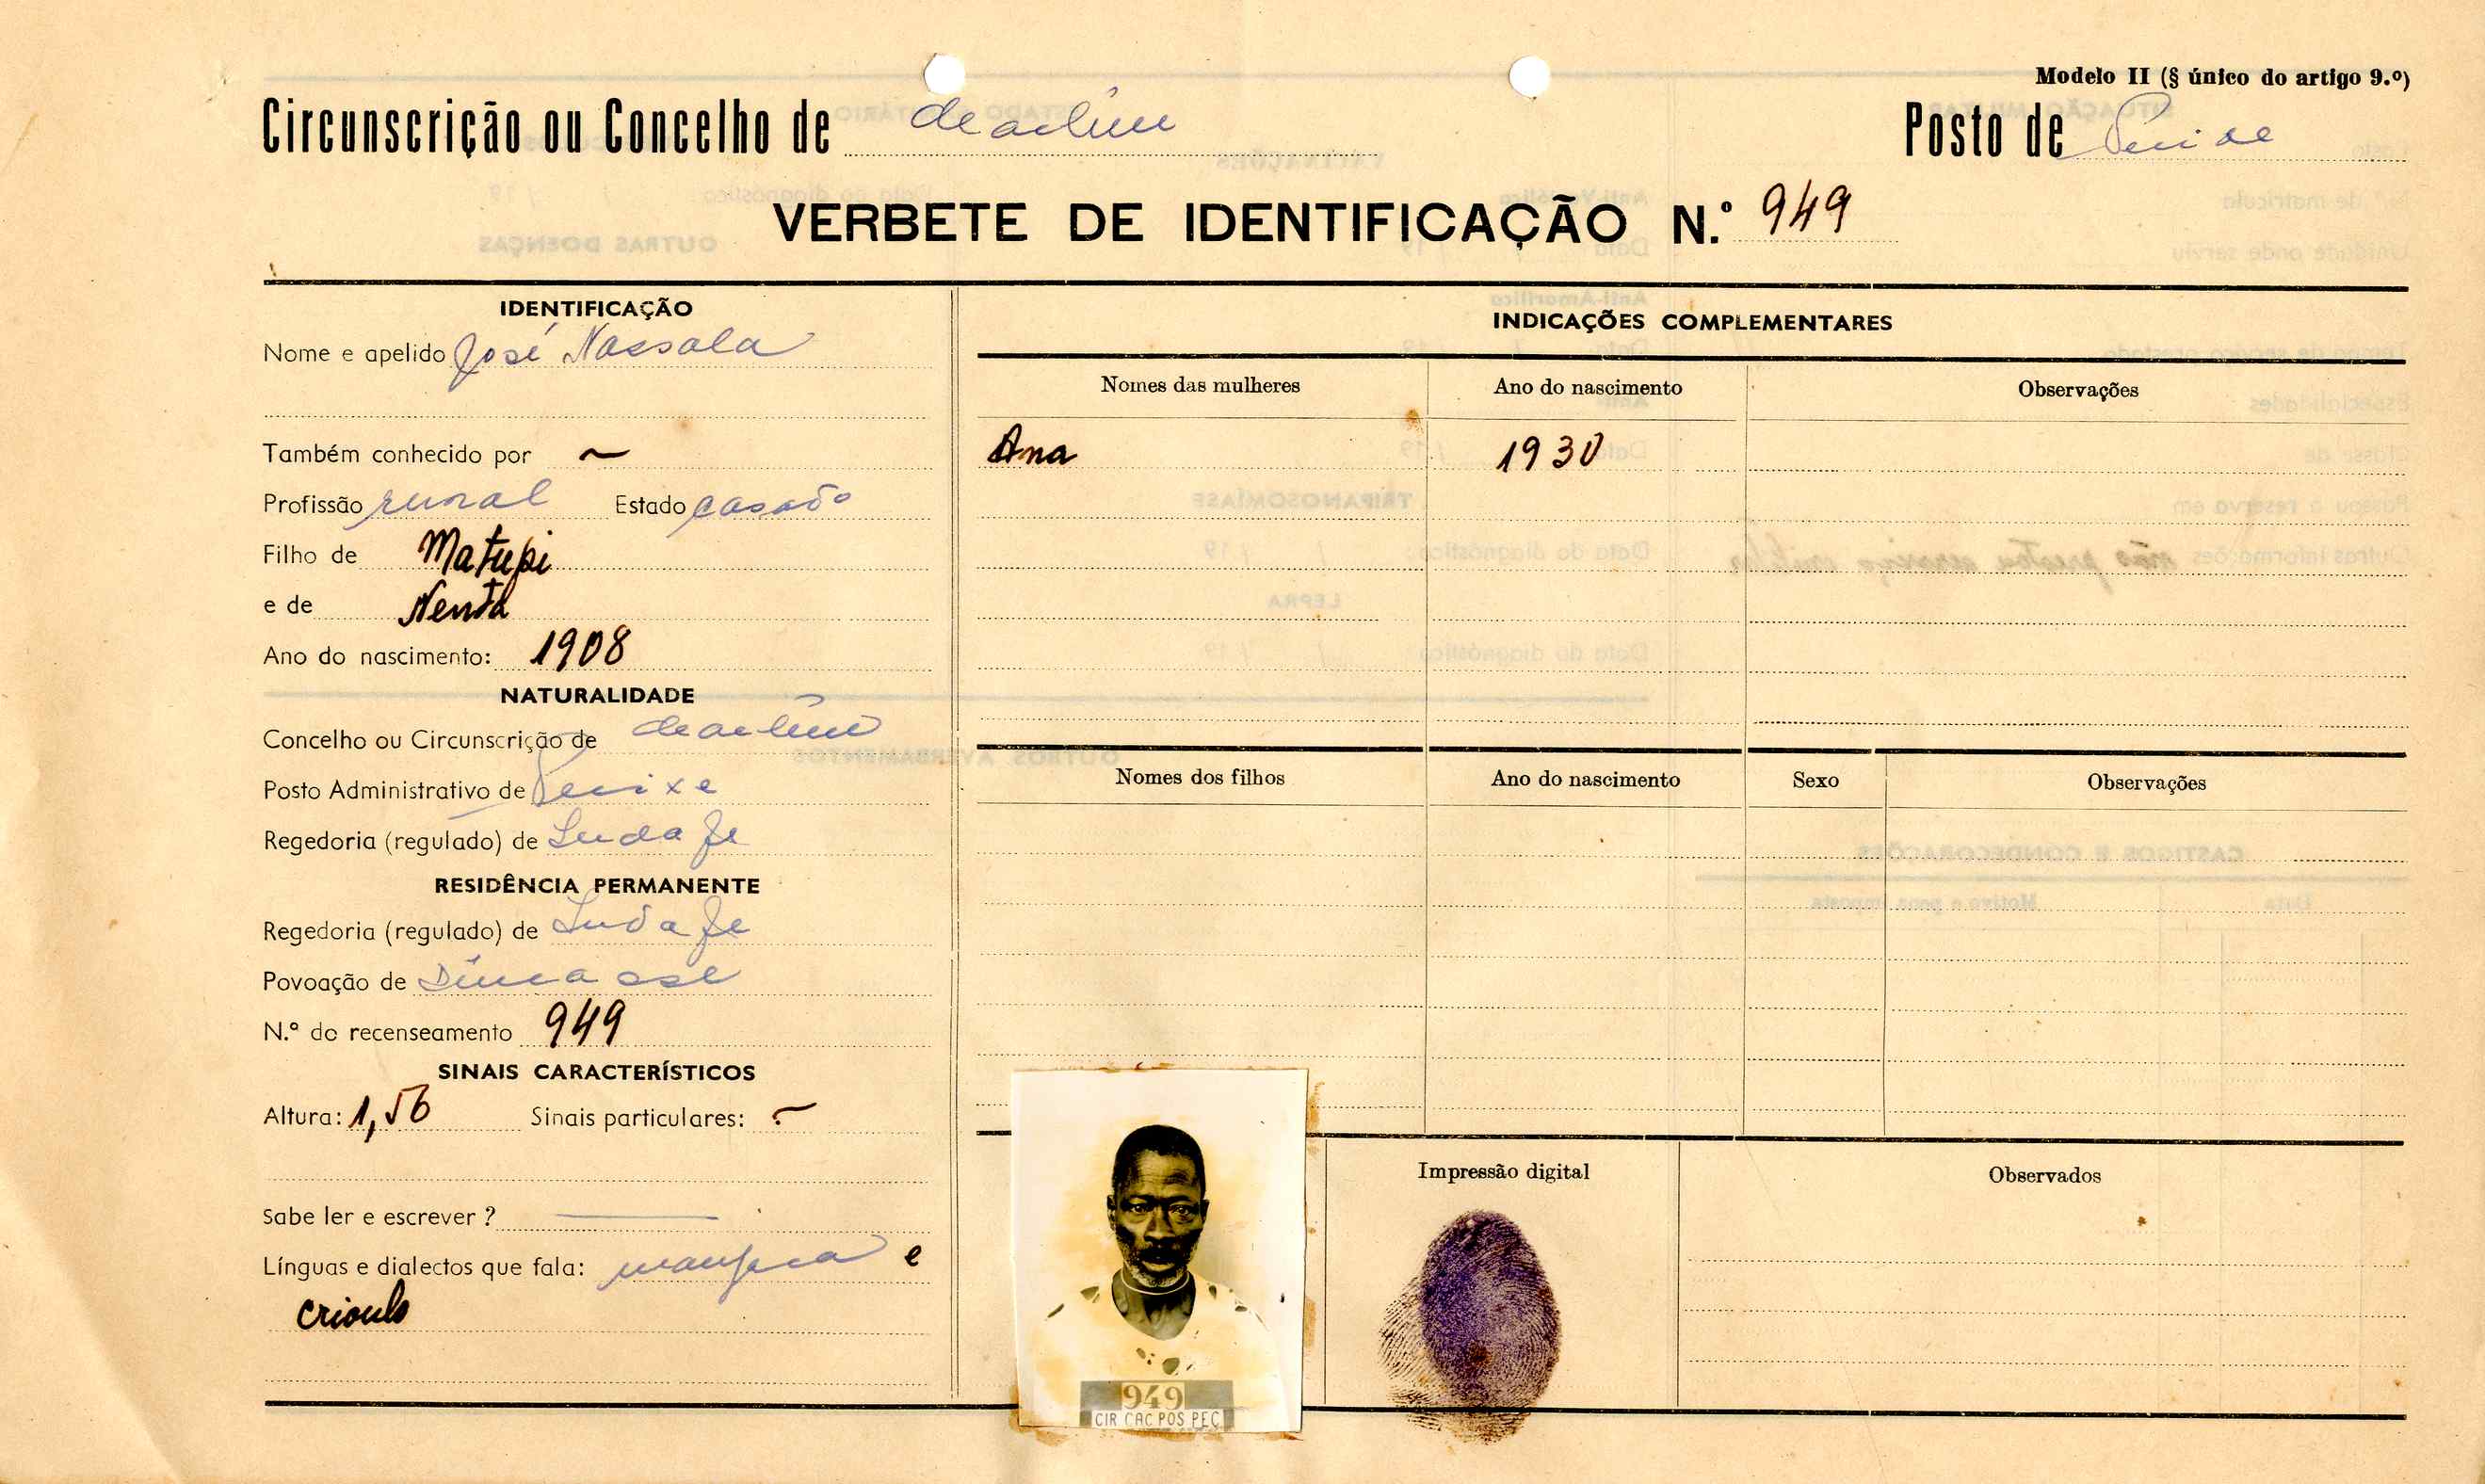 Modelo II (§ único do artigo 9.º)
Circunscrição ou Concelho de
Posto de
VERBETE DE IDENTIFICAÇÃO N.º 949
IDENTIFICAÇÃO
Nome e apelido José Nassala
Também conhecido por ~
Profissão rural Estado casado
Filho de Matupi
e de Nenta
Ano do nascimento: 1908
NATURALIDADE
Concelho ou Circunscrição de
Posto Administrativo de
Regedoria (regulado) de
RESIDÊNCIA PERMANENTE
Regedoria (regulado) de
Povoação de
N.º do recenseamento 949
SINAIS CARACTERÍSTICOS
Altura: 1,56 Sinais particulares: ~
Sabe ler e escrever ?
Línguas e dialectos que fala: e
crioulo
INDICAÇÕES COMPLEMENTARES
Nomes das mulheres Ano do nascimento Observações
Ana 1930
Nomes dos filhos Ano do nascimento Sexo Observações
949
CIR CAC POS PEC
Impressão digital
Observados